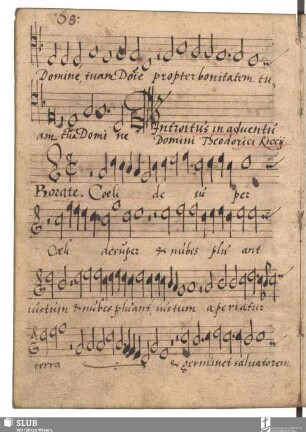 58:
Domine, tuam Dñe propter bonitatem tu,
am tuã Domi ne
Introitus in adventũ
Domini Theodorici Riccij
Rorate. Coeli de su per
Cœli desuper & nubes plu ant
iustum & nubes pluant, iustum aperiatur
terra & germinet salvatorem
SLUB
Wir führen Wissen.